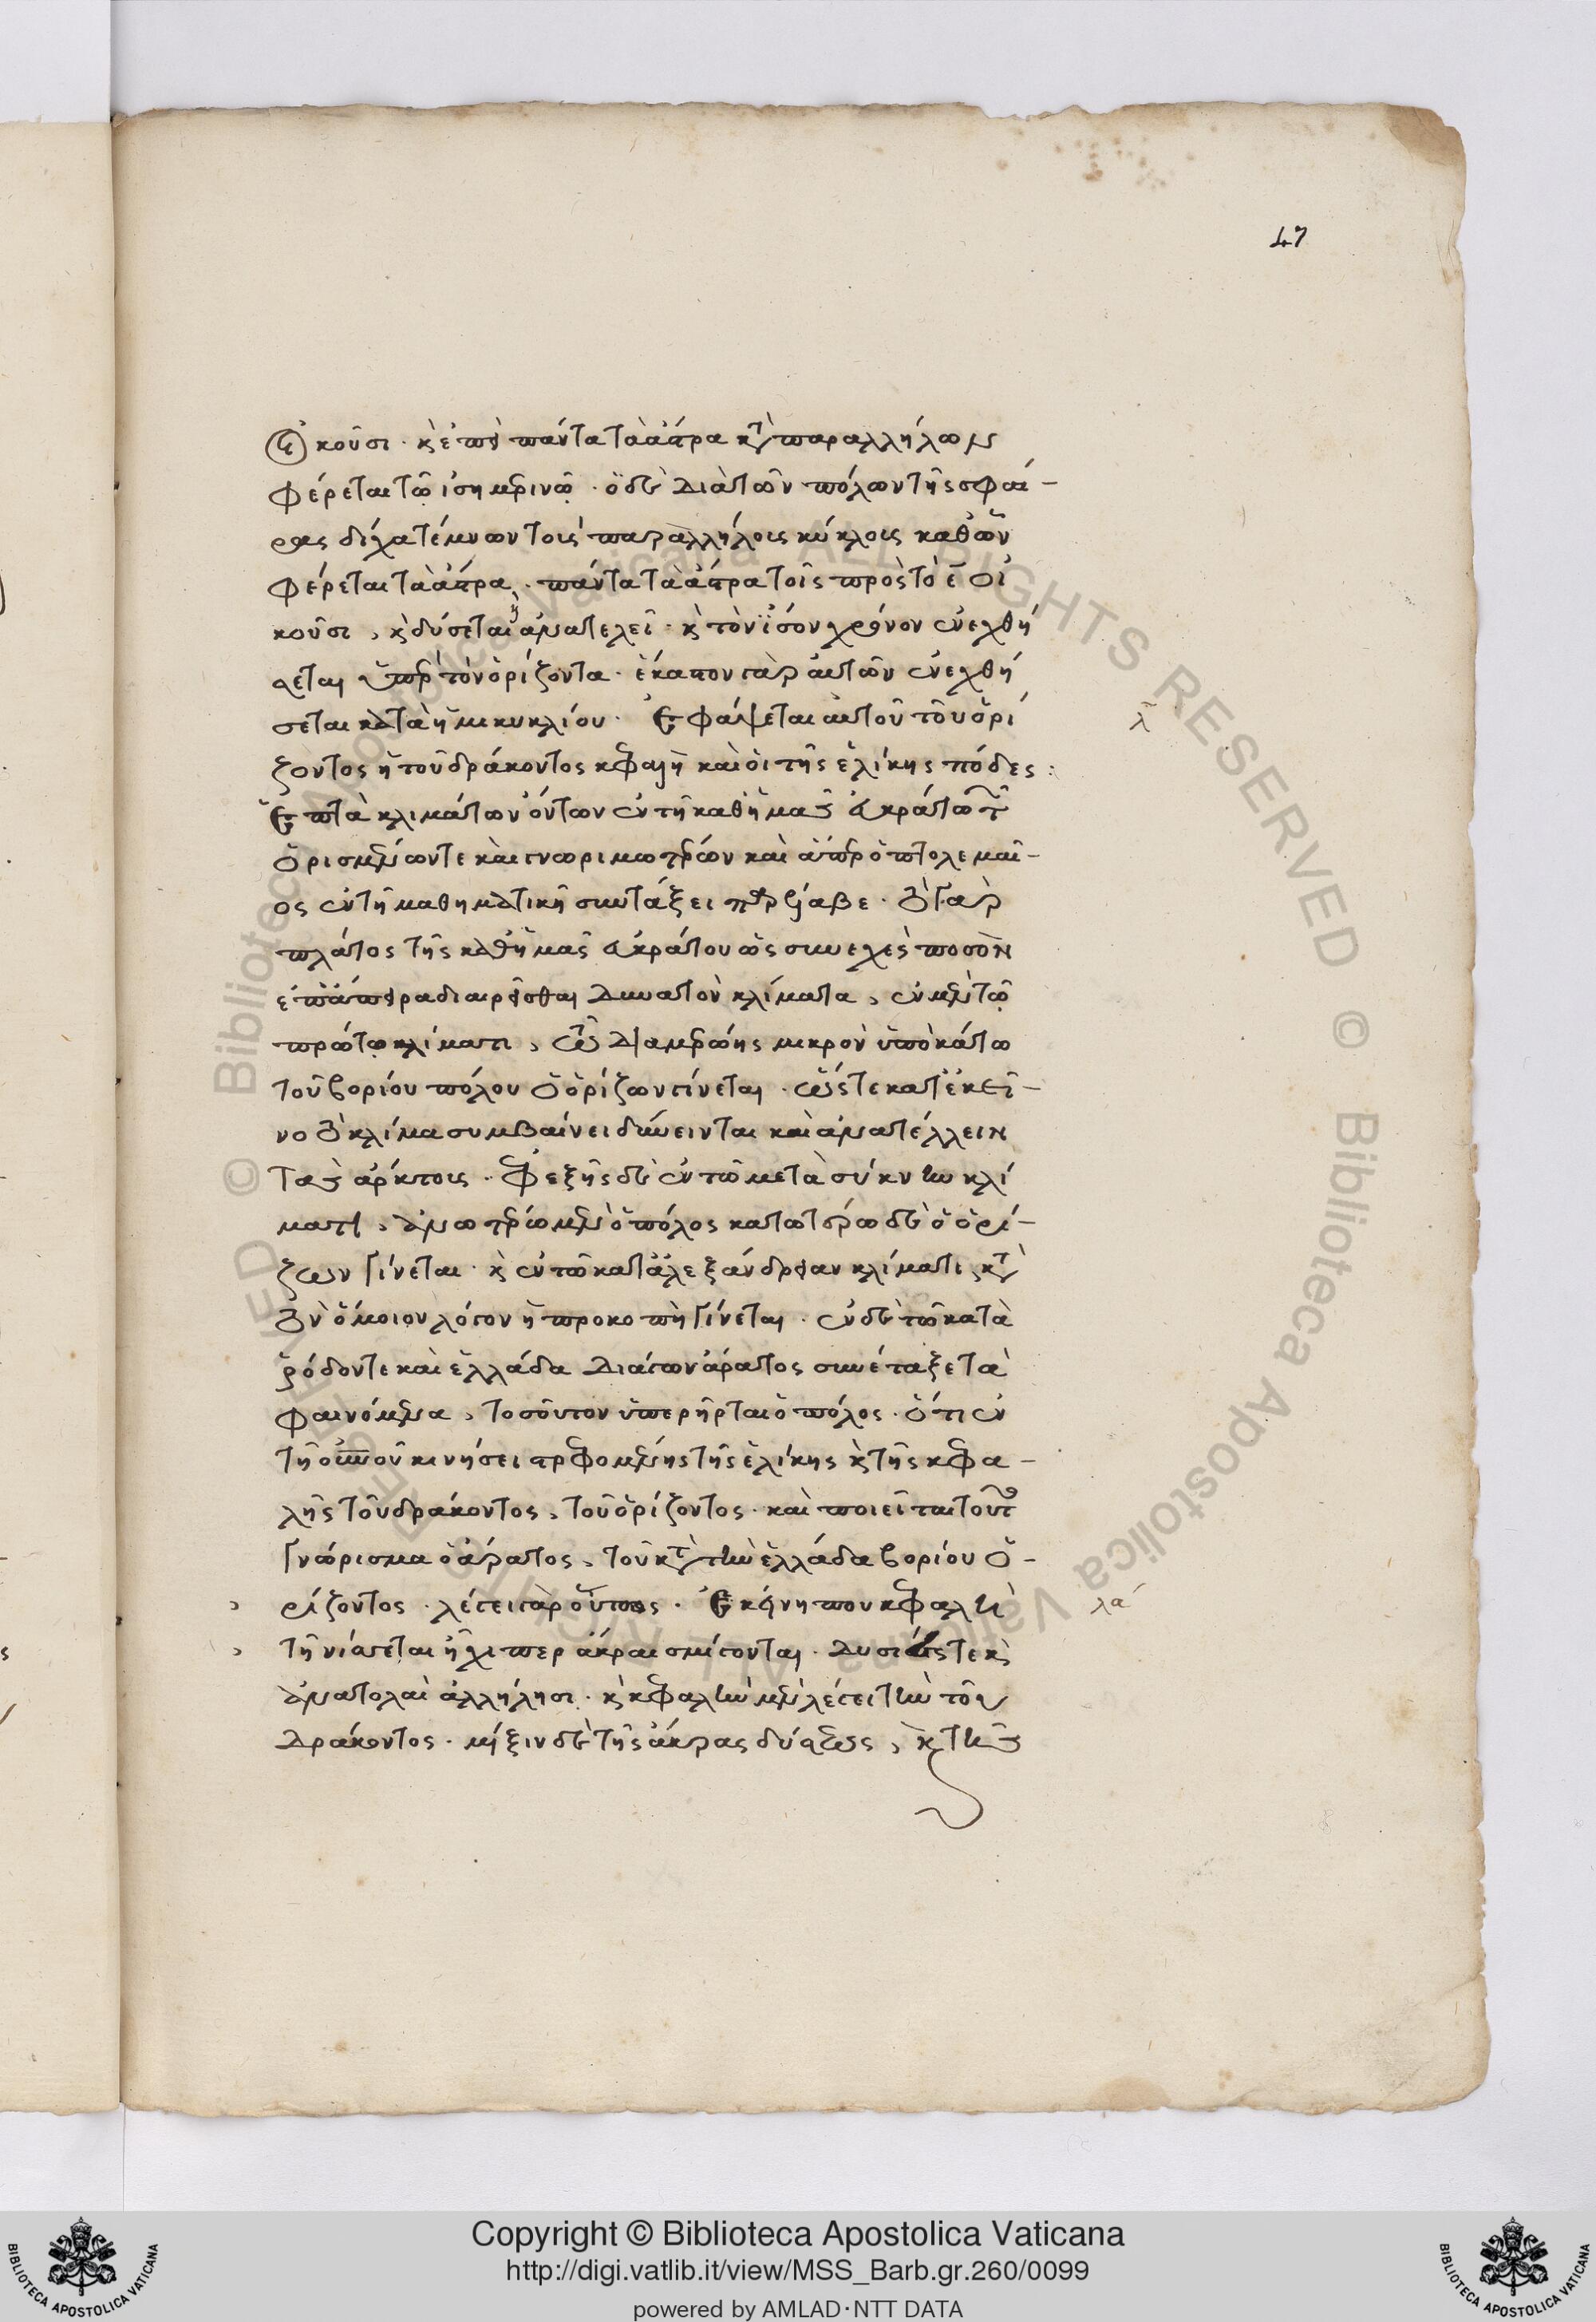 47
κοῦσι. κὲπεὶ πάντα τὰ ἄστρα κατὰ παραλλήλων
φέρεται τῷ ἰσημερινῷ. ὁ δὲ διὰ τῶν πόλων τῆς σφαί-
ρας δίχα τέμνων τοὺς παραλλήλους κύκλους καθ' ὧν
φέρεται τὰ ἄστρα. πάντα τὰ ἄστρα τοῖς πρὸς τὸ οἰ
κοῦσι, καὶ δύσεται καὶ ἀνατελεῖ. καὶ τὸν ἴσον χρόνον ἐνεχθή
σεται ὑπὲρ τὸν ὁρίζοντα. ἕκαστον γὰρ αὐτῶν ἐνεχθή
σεται κατὰ ἡμικυκλίου. ἐφάψεται αὐτοῦ τοῦ ὁρί
λ
ζοντος ἡ τοῦ δράκοντος κεφαλὴ καὶ οἱ τῆς ἑλίκης πόδες:
ἑπτὰ κλιμάτων ὄντων ἐν τῇ καθ' ἡμᾶς εὐκράτῳ
ὁρισμένων τε καὶ γνωριμωτέρων καὶ ἅπερ ὁ πτολεμαῖ-
ος ἐν τῇ μαθηματικῇ συντάξει περιέλαβε. τὸ γὰρ
πλάτος τῆς καθ' ἡμᾶς εὐκράτου ὡς συνεχὲς ποσὸν
ἐπ' ἄπειρα διαιρεῖσθαι δυνατὸν κλίματα, ἐν μὲν τῷ
πρώτῳ κλίματι, τῷ διὰ μερόης μικρὸν ὑποκάτω
τοῦ βορίου πόλου ὁ ὁρίζων γίνεται. ὥστε κατ' ἐκεῖ-
νο τὸ κλίμα συμβαίνει δύνειν τε καὶ ἀνατέλλειν
τὰς ἄρκτους. ἐφεξῆς δὲ ἐν τῷ μετὰ συήνην κλί
ματι, ἀνωτέρω μὲν ὁ πόλος κατωτέρω δὲ ὁ ὁρί-
ζων γίνεται. καὶ ἐν τῷ κατ' ἀλεξάνδρειαν κλίματι, κατὰ
τὸν ὅμοιον λόγον ἡ προκοπὴ γίνεται. ἐν δὲ τῷ κατὰ
ῥόδον τε καὶ ἑλλάδα διάγων ἄρατος συνέταξε τὰ
φαινόμενα, τοσοῦτον ὑπερῆρται ὁ πόλος. ὅτι ἐν
τῇ οὐρανοῦ κινήσει στρεφομένης τῆς ἑλίκης καὶ τῆς κεφα-
λῆς τοῦ δράκοντος, τοῦ ὁρίζοντος. καὶ ποιεῖται τοῦτο
γνώρισμα ὁ ἄρατος, τοῦ κατὰ τὴν ἑλλάδα βορίου ὁ-
ρίζοντος. λέγει γὰρ οὕτως. ἐκείνη που κεφαλὴ
λα
τῇ νίσσεται ἧχι περ ἄκραι σμίγονται. δύσιές τε καὶ
ἀνατολαὶ ἀλλήλῃσι. καὶ κεφαλὴν μὲν λέγει τὴν τοῦ
δράκοντος. μίξιν δὲ τῆς ἄκρας δύσεως, καὶ τῆς
Copyright © Biblioteca Apostolica Vaticana
http://digi.vatlib.it/view/MSS_Barb.gr.260/0099
powered by AMLAD·NTT DATA